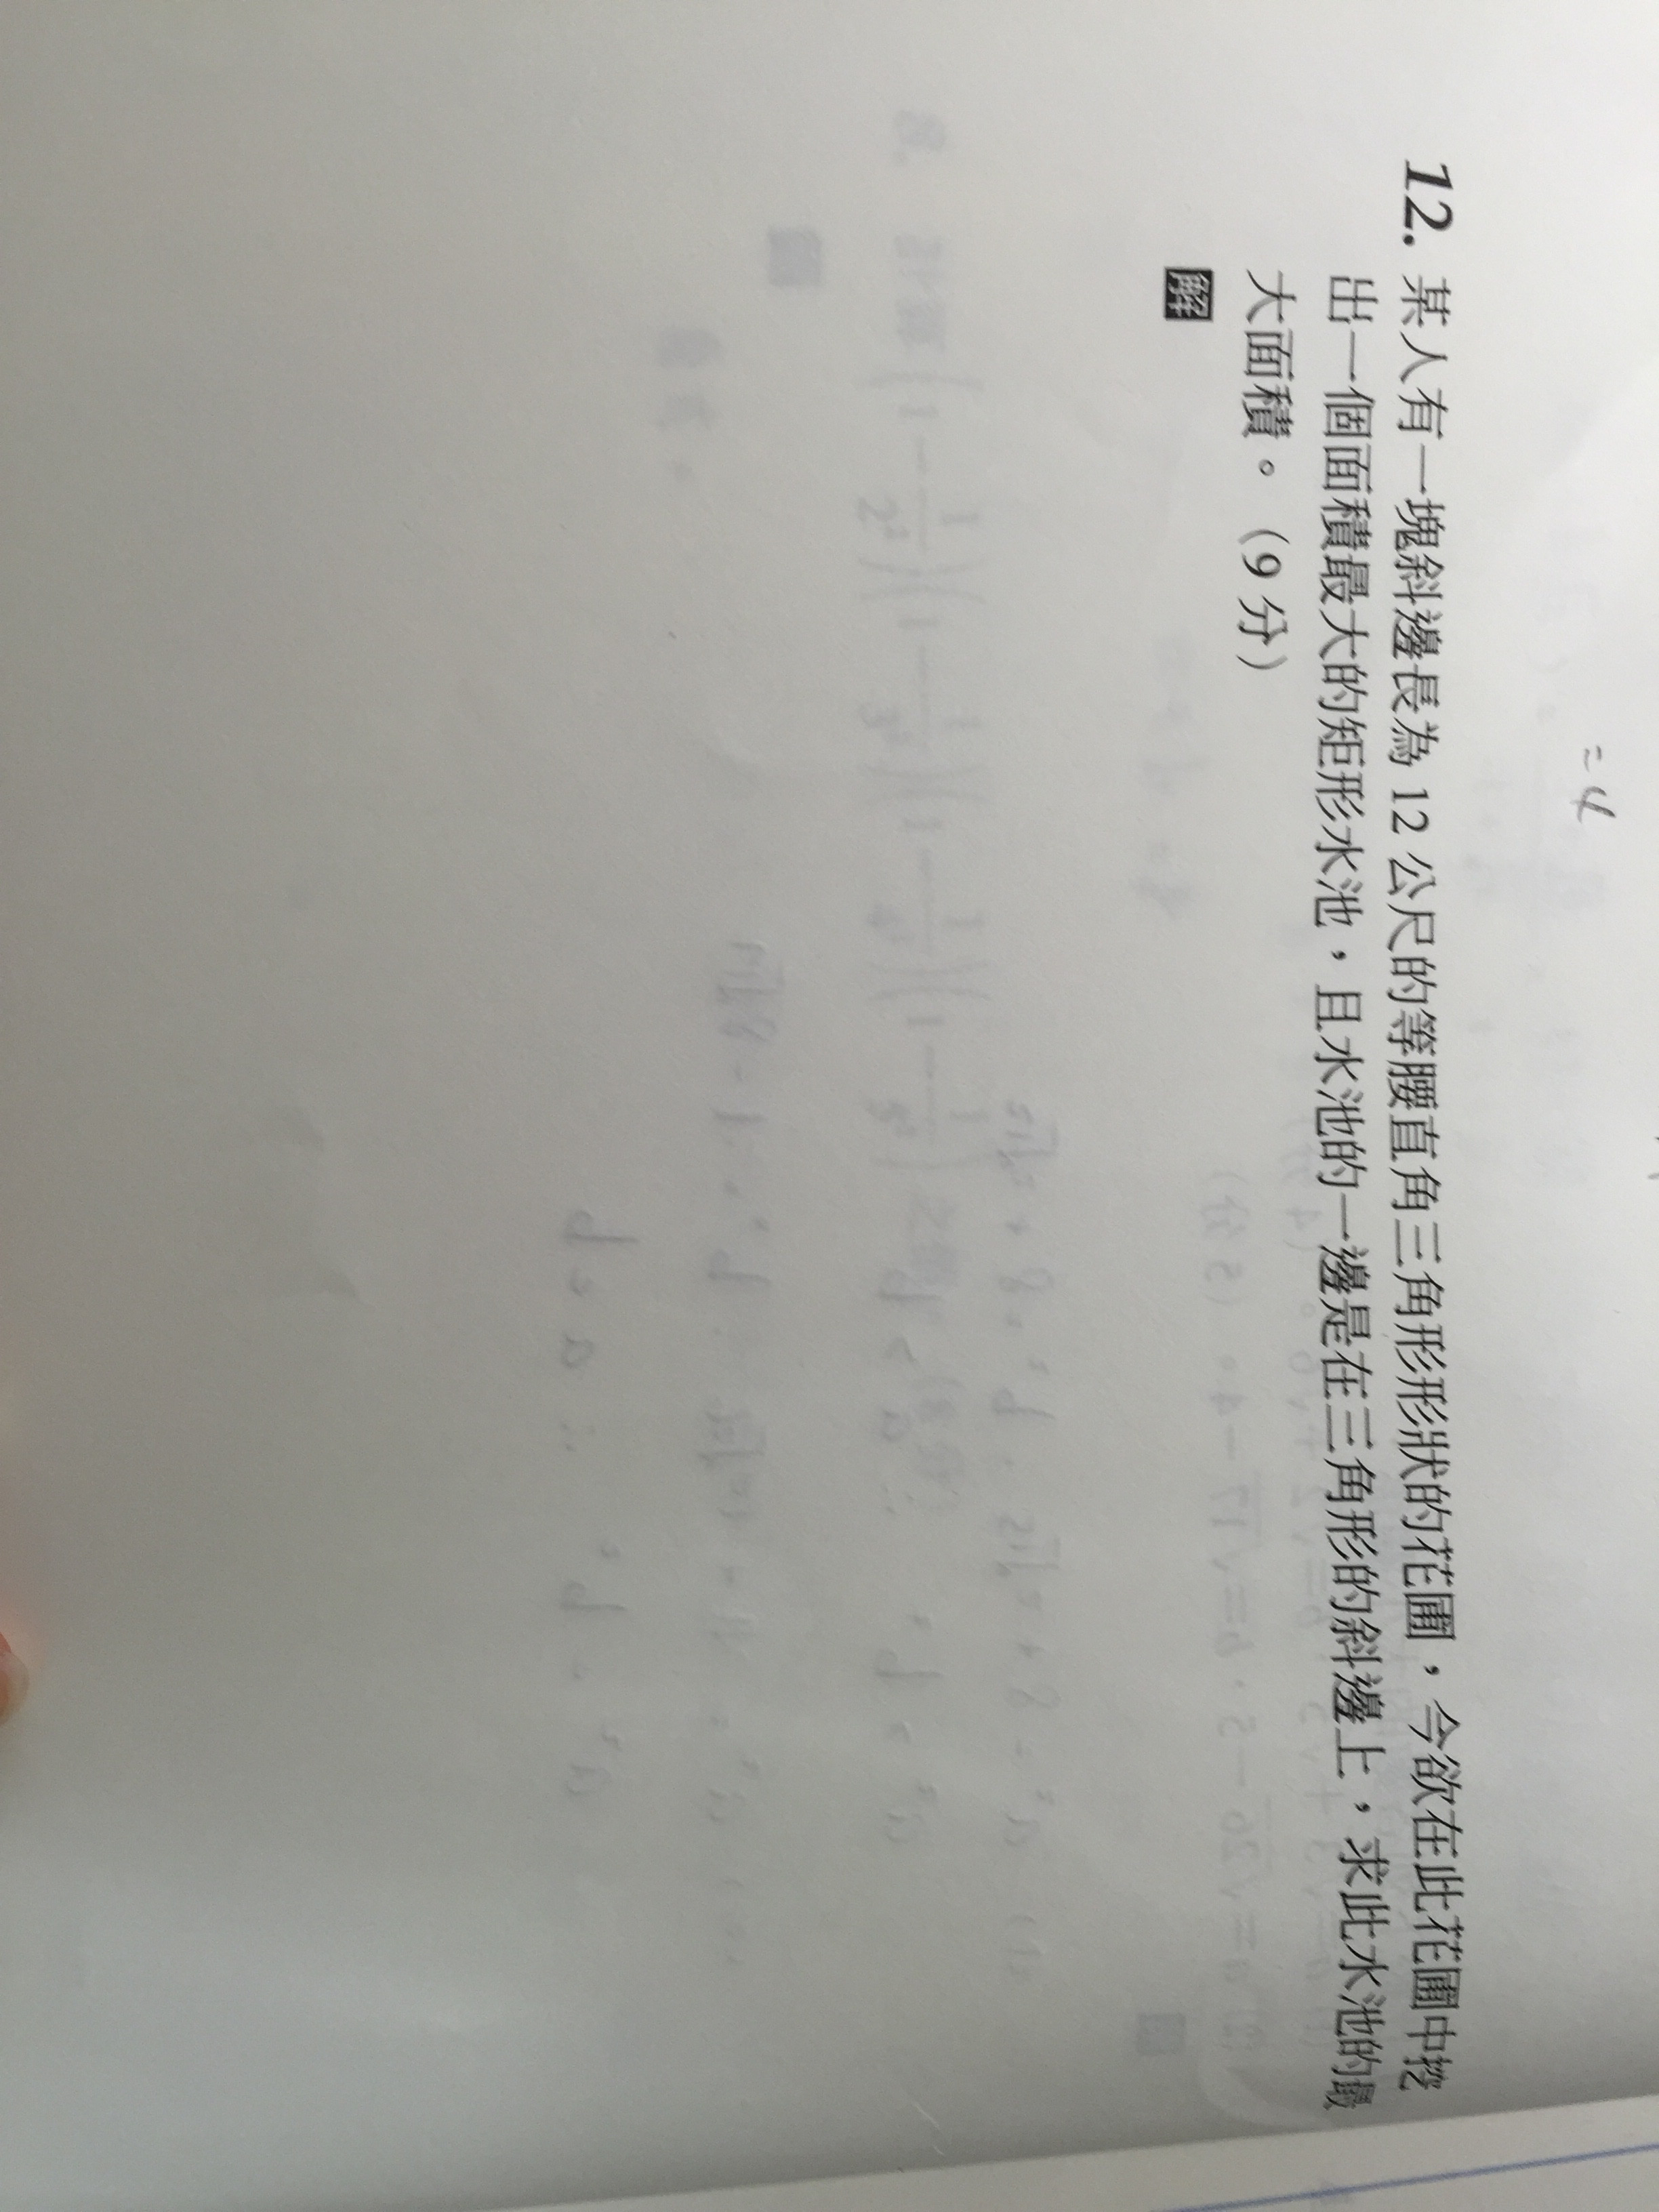 =4
12. 某人有一塊斜邊長為 12 公尺的等腰直角三角形形狀的花圃，今欲在此花圃中挖
出一個面積最大的矩形水池，且水池的一邊是在三角形的斜邊上，求此水池的最
大面積。（9 分）
解